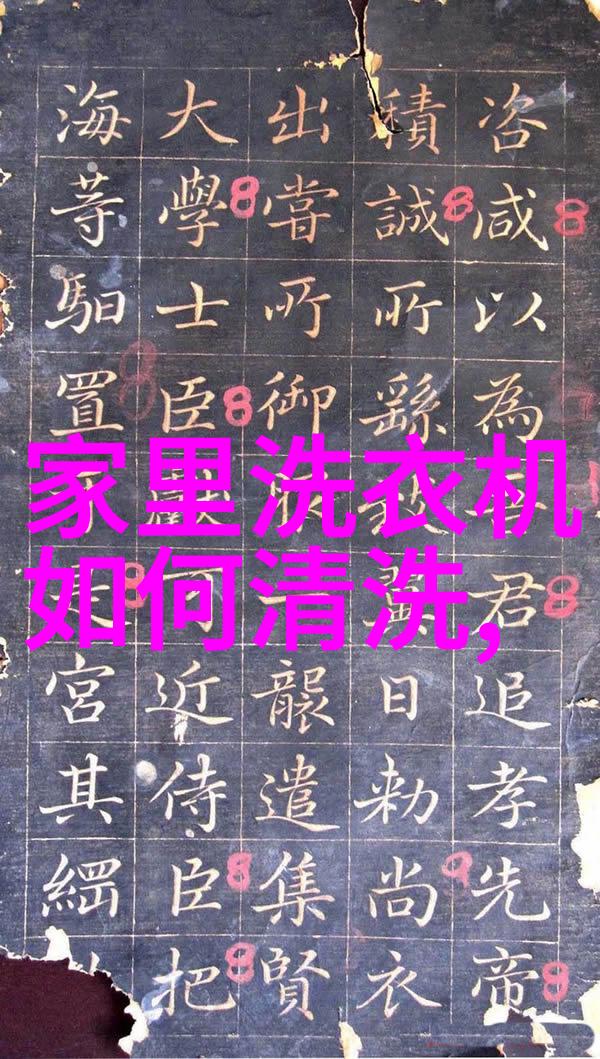 咨咸以為君追孝先帝
積誠所繇日勑尚衣
出嘗所御一襲遣集賢
大學士臣獻可近侍臣把
海等馹置走宮其
家里洗衣机
如何清洗,